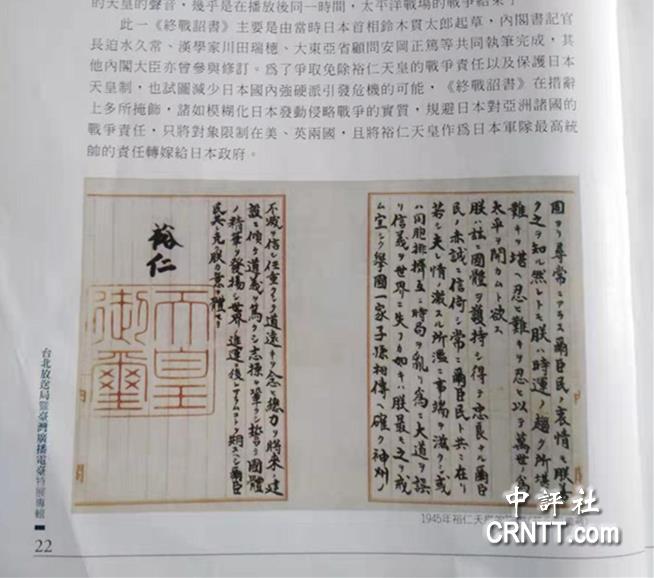 的天皇的聲音，幾乎是在播放後同一時間，太平洋戰場的戰爭結束了
此一《終戰詔書》主要是由當時日本首相鈴木貫太郎起草，內閣書記官
長迫水久常、漢學家川田瑞穗、大東亞省顧問安岡正篤等共同執筆完成，其
他內閣大臣亦曾參與修訂。為了爭取免除裕仁天皇的戰爭責任以及保護日本
天皇制，也試圖減少日本國內強硬派引發危機的可能，《終戰詔書》在措辭
上多所掩飾，諸如模糊化日本發動侵略戰爭的實質，規避日本對亞洲諸國的
戰爭責任，只將對象限制在美、英兩國，且將裕仁天皇作為日本軍隊最高統
帥的責任轉嫁給日本政府。
固ヨリ尋常ニアラス爾臣民ノ衷情モ朕善
ク之ヲ知ル然レトモ朕ハ時運ノ趨ク所堪ヘ
難キヲ堪ヘ忍ヒ難キヲ忍ヒ以テ萬世ノ為
太平ヲ開カムト欲ス
朕ハ茲ニ國體ヲ護持シ得テ忠良ナル爾臣
民ノ赤誠ニ信倚シ常ニ爾臣民ト共ニ在リ
若シ夫レ情ノ激スル所濫ニ事端ヲ滋クシ或
ハ同胞排擠互ニ時局ヲ亂リ為ニ大道ヲ誤
リ信義ヲ世界ニ失フカ如キハ朕最モ之ヲ戒
ム宜シク擧國一家子孫相傳ヘ確ク神州ノ
不滅ヲ信シ任重クシテ道遠キヲ念ヒ總力ヲ將來ノ建
設ニ傾ケ道義ヲ篤クシ志操ヲ鞏クシ誓テ國體
ノ精華ヲ發揚シ世界ノ進運ニ後レサラムコトヲ期スヘシ爾臣
民其レ克ク朕カ意ヲ體セヨ
裕仁
天皇
御璽
1945年裕仁天皇
台北放送局暨臺灣廣播電臺特展專輯
22
中評社
CRNTT.com